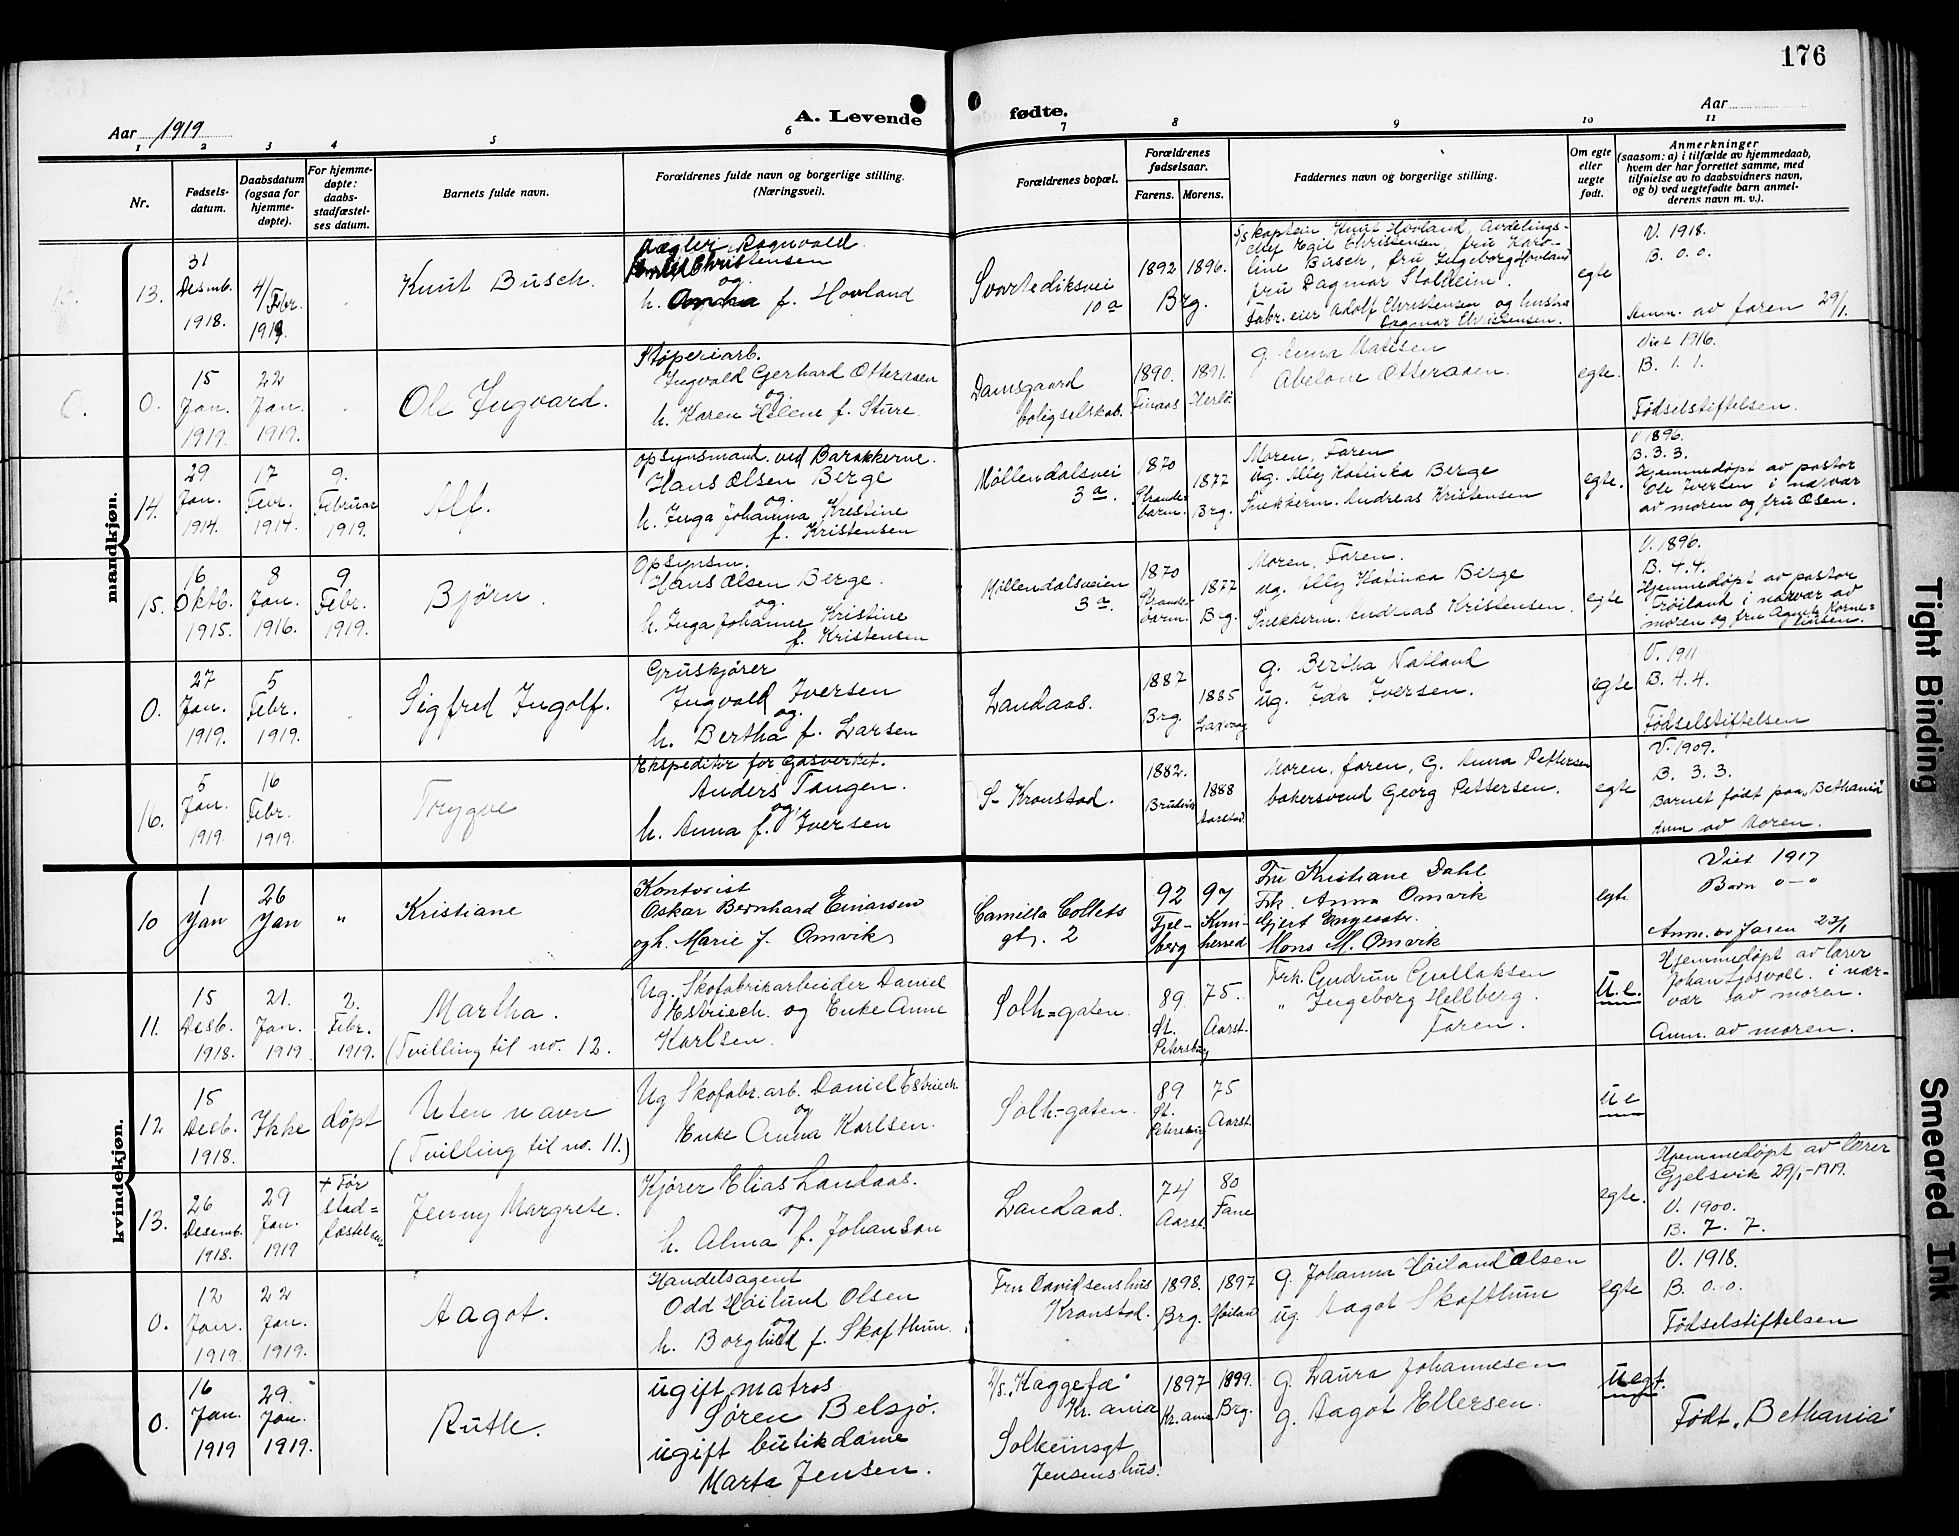 176
Aar 1919
A. Levende
fødte.
Aar
1 2 3 4 5 6 7 8 9 10 11
Nr.
Fødsels-
datum.
Daabsdatum
(ogsaa for
hjemme-
døpte).
For hjemme-
døpte:
daabs-
stadfæstel-
ses datum.
Barnets fulde navn.
Forældrenes fulde navn og borgerlige stilling.
(Næringsvei).
Forældrenes bopæl.
Forældrenes
fødselsaar.
Farens. Morens.
Faddernes navn og borgerlige stilling.
Om egte
eller
uegte
født.
Anmerkninger
(saasom: a) i tilfælde av hjemmedaab,
hvem der har forrettet samme, med
tilføielse av to daabsvidners navn,
og b) ved uegtefødte barn anmel-
derens navn m. v.).
mandkjøn.
13.
31
Desmb.
1918.
4/Febr.
1919
Knut Busch.
Ragnvald
Christensen
og
h. Anna f. Hovland
Svartediksvei
10 a
1892 1896.
Brg.
S/S kaptein Knut Hovland, Avdelings-
chef Egil Christensen, fru Karo-
line Busch, fru Ingeborg Hovland
fru Dagmar Stolheim.
Fabr. eier Adolf Christensen og hustru
Dagmar Christensen.
egte
V. 1918.
B. 0. 0.
Anm. av faren 29/1.
0.
15
Jan.
1919.
22
Jan.
1919.
Ole Ingvard.
Støperiarb.
Ingvald Gerhard Otteraaen
og
h. Karen Helene f. Sture.
Damsgaard
boligselskab.
1890. Finaas
1891. Herlø.
g. Anna Madsen
Abelone Otteraaen.
egte.
Viet 1916.
B. 1. 1.
Fødselstiftelsen.
14.
29
Jan.
1914.
17
Febr.
1914.
9.
Februar
1919.
Alf.
Opsynsmand. ved Barakkerne.
Hans Olsen Berge
og.
h. Inga Johanna Kristine
f. Kristensen
Møllendalsvei
3 a.
1870
Strande-
barm.
1877
Brg.
Moren, Faren
ug. Ally Katinka Berge
Snekkerm. Andreas Kristensen
egte.
V 1896.
B. 3. 3.
Hjemmedøpt av pastor
Ole Iversen i nærvær
av moren og fru Olsen.
15.
16
Oktb.
1915.
8
Jan.
1916.
9
Febr.
1919.
Bjørn.
Opsynsm.
Hans Olsen Berge.
og.
h. Inga Johanne Kristine
f. Kristensen
Møllendalsveien
3 a.
1870
Strande-
barm.
1877
Brg.
Moren, Faren.
ug. Ally Katinka Berge
Snekkerm. Andreas Kristensen.
egte
V. 1896.
B. 4. 4.
Hjemmedøpt av pastor
Frøiland i nærvær av
moren og fru Agnete Korne=
liusen.
0.
27
Jan.
1919.
5
Febr.
1919.
Sigfred Ingolf.
Gruskjører
Ingvald Iversen
og.
h. Bertha f. Larsen
Landaas.
1887
Brg.
1885
g. Bertha Natland
ug. Ida Iversen.
egte
V. 1911
B. 4. 4.
Fødselstiftelsen
16.
5
Jan.
1919.
16
Febr.
1919.
Trygve
Ekspeditør for Gasverket.
Anders Tangen.
og.
h. Anna f. Iversen
S- Kronstad.
1882.
1888
Aarstad.
Moren, faren, G. Anna Pettersen
bakersvend Georg Pettersen.
egte
V. 1909.
B. 3. 3.
Barnet født paa "Bethania"
Anm av Moren.
kvindekjøn.
10
1
Jan
26
Jan
"
Kristiane
Kontorist
Oskar Bernhard Einarsen
og h. Marie f. Omvik
Camilla Collets
gt. 2
92
Fjel-
berg
97
Kvin-
herred
Fru Kristiane Dahl
Frk. Anna Omvik
Gjert Engesæter.
Mons M. Omvik
egte
Viet 1917
Barn 0-0
Anm. av faren 22/1
11.
15
Desb.
1918.
21.
Jan.
1919.
2.
Febr.
1919.
Martha.
(Tvilling til no. 12.
Ug. Skofabrikarbeider Daniel
Estriech. og Enke Anne
Karlsen.
Solh=gaten.
89.
St.
Petersburg
75.
Aarst.
Frk. Gudrun Gullaksen
" Ingeborg Hellberg.
Faren.
U.e.
Hjemmedøpt av lærer
Johan Sjøsvoll. i nær-
vær av moren.
Anm. av moren.
12.
15
Desb.
1918.
Ikke døpt
Uten navn
(Tvilling til no. 11.)
Ug Skofabr. arb. Daniel Estriech
og
Enke Anna Karlsen.
Solh-gaten.
89
St.
Petersburg
75
Aarst.
u e
13.
26
Desemb.
1918.
29
Jan.
1919
+ Før
stad=
fæstelsen
Jenny Margrete.
Kjører Elias Landaas.
og
h. Alma f. Johanson
Landaas.
74
Aarst.
80
Fane
egte.
Hjemmedøpt av lærer
Gjelsvik 29/1-1919.
V. 1900.
B. 7. 7.
0.
12
Jan.
1919.
22
Jan.
1919.
Aagot.
Handelsagent
Odd Høilund Olsen
og
h. Borghild f. Skofthun.
Fru Davidsenshus
Kronstad.
1898.
Brg.
1897
g. Johanna Høiland Olsen
ug. Aagot Skofthun
egte
V. 1918.
B. 0. 0.
Fødselstiftelsen
0.
16
Jan.
1919
29.
Jan.
1919.
Ruth.
ugift matros
Søren Belsjø.
ugift butikdame
Marta Jensen.
"Kaggefæ"
Kr. ania
Solheimsgt
Jensenshus.
1897
Kr. ania
1899.
Brg.
g. Laura Johannesen
g. Aagot Ellersen.
uegt.
Født "Bethania"
Tight Binding
Smeared Ink